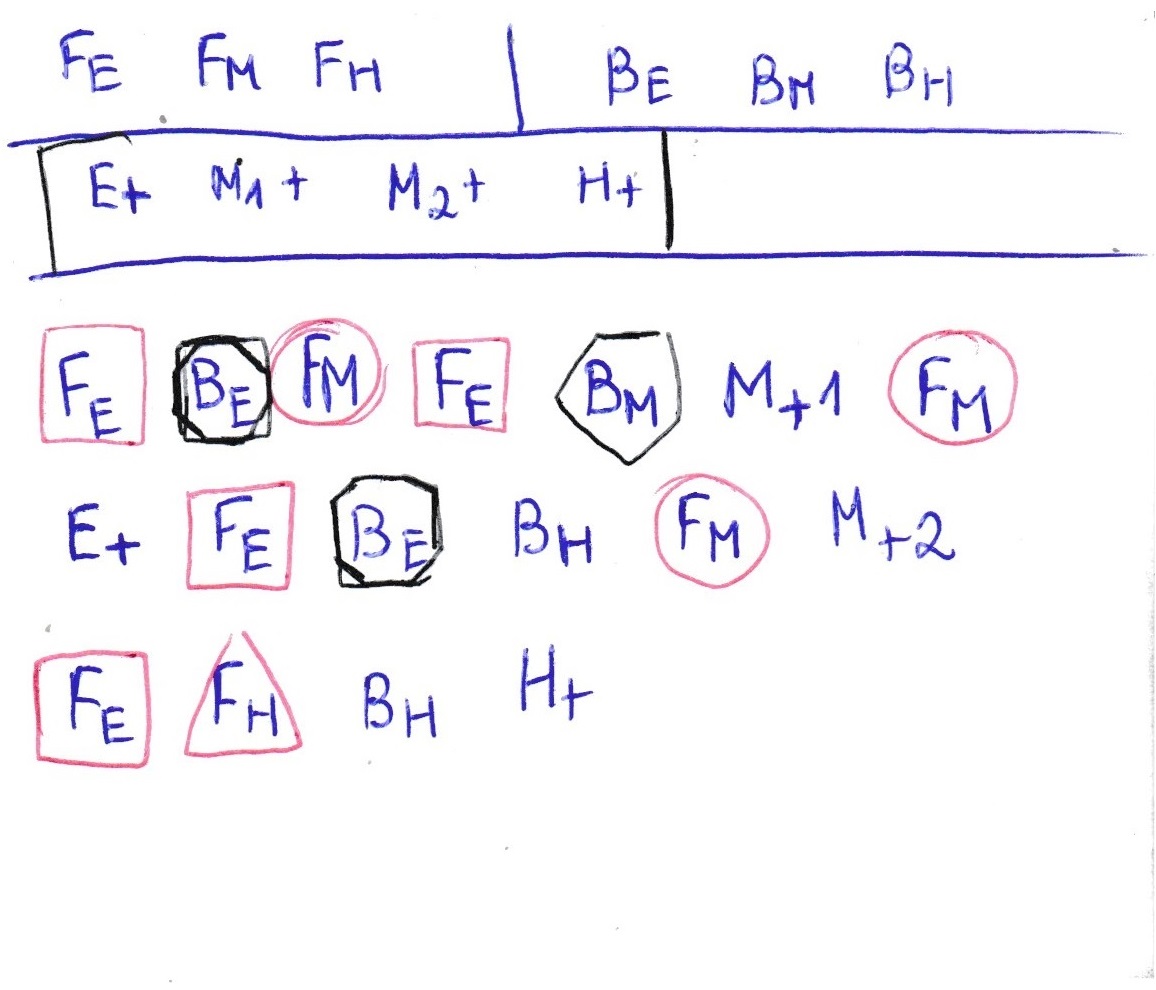 FE FM FH | BE BM BH
E+ M1+ M2+ H+
FE BE FM FE BM M+1 FM
E+ FE BE BH FM M+2
FE FH BH H+